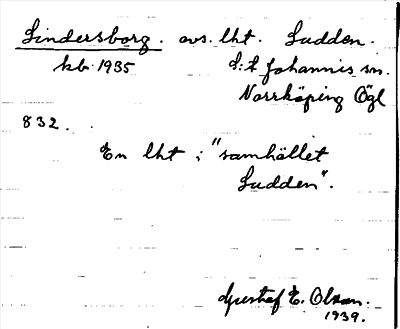 Lindersborg. avs. lht. Sudden.
kb. 1935 S:t Johannis sn.
Norrköping Ögl
832.
En lht i "samhället
Sudden".
Gustaf E. Olson.
1939.